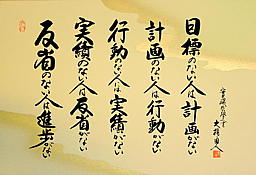 目標のない人は計画がない
計画のない人は行動がない
行動のない人は実績がない
実績のない人は反省がない
反省のない人は進歩がない